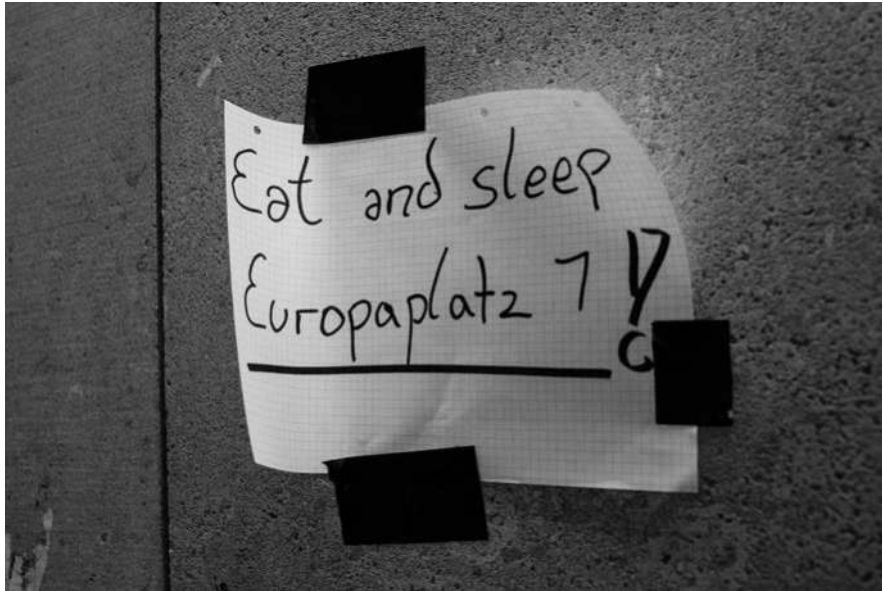 Eat and sleep
Europaplatz 1 !